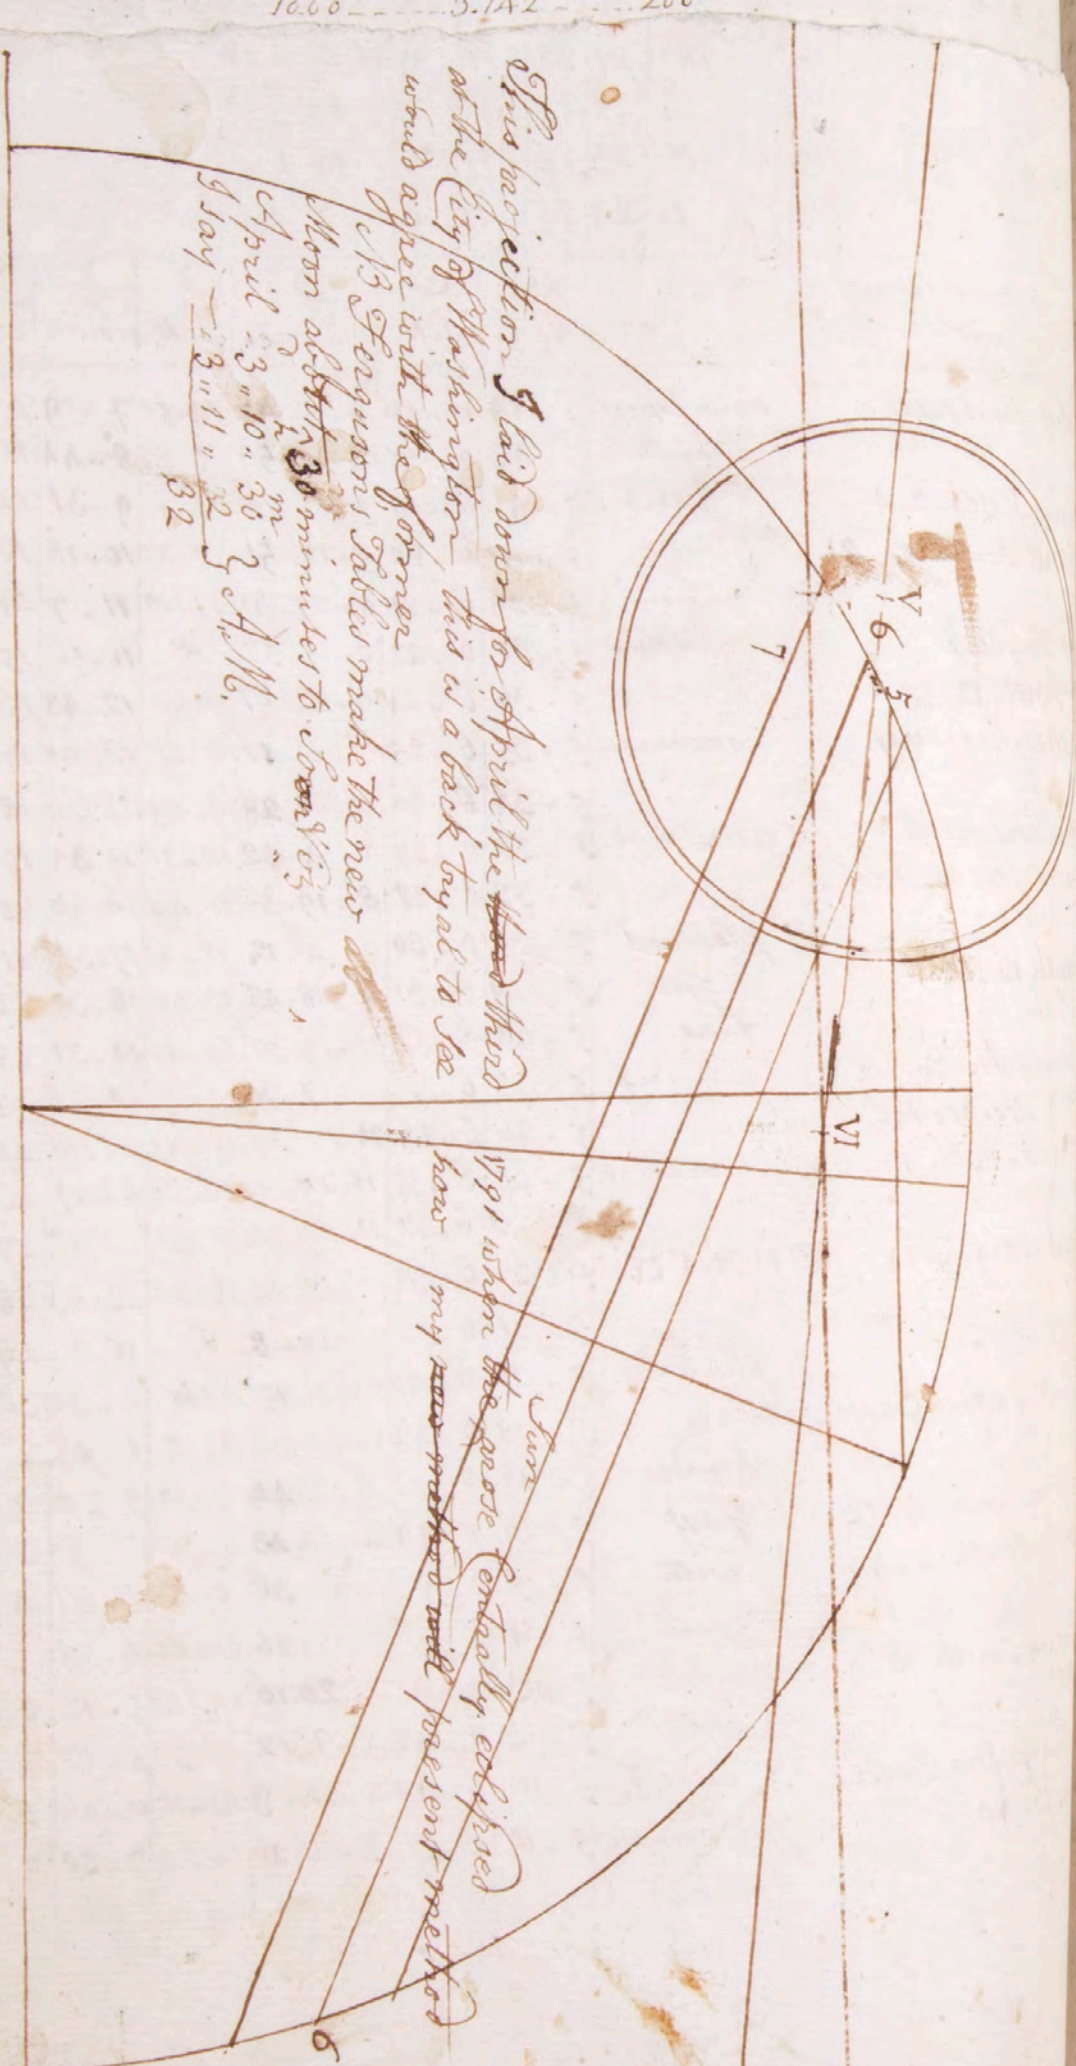 1000 - - - - - 3.142 - - - - 200
This projection I laid down for April the third 1791 when the Sun arose Centrally eclipsed
at the City of Washington, this is a back tryal to see how my new method will present method
would agree with the former
NB Ferguson's Tables make the new
Moon about 30 minutes to Soon Viz
D h m
April - 3 " 10 " 30 } A, M.
I say - 3 " 11 " 32
32
V
6
5
7
VI
6